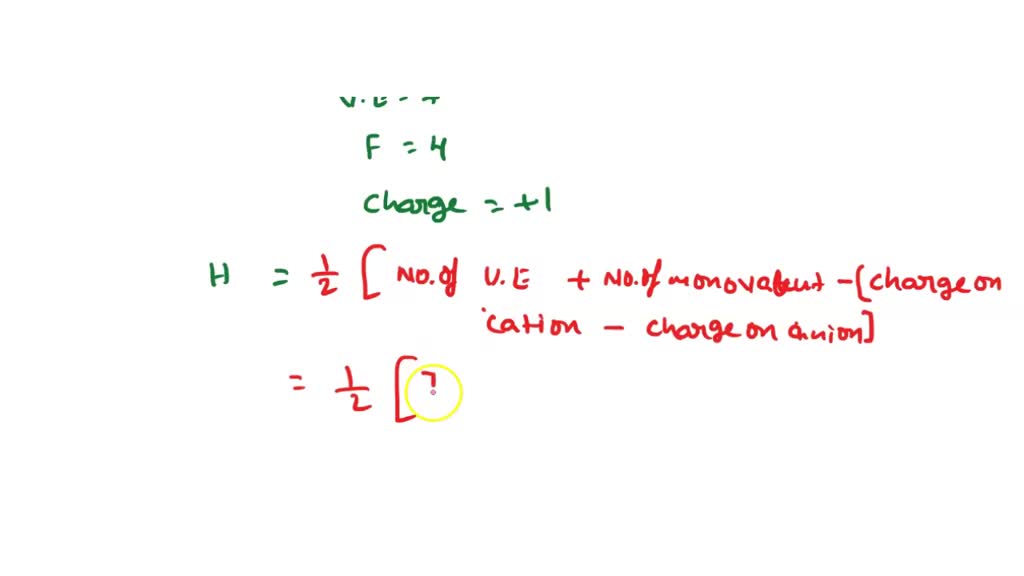 F = 4
charge = +1
H = 1/2 [ No. of V.E + No. of monovalent - (charge on
cation - charge on anion]
= 1/2 [ 7